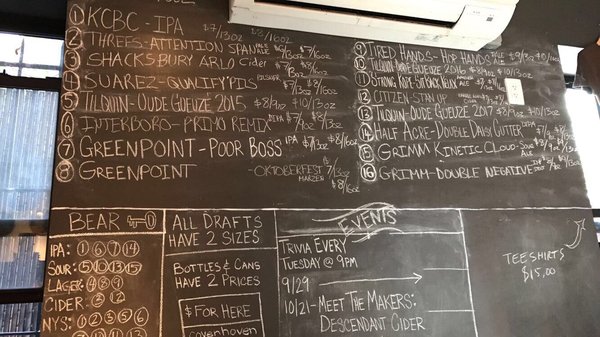 ① KCBC - IPA $7/13oz $8/16oz
② THREES - ATTENTION SPAN PALE ALE $6/13oz $7/16oz
③ SHACKSBURY ARLO Cider $7/13oz $8/16oz
④ SUAREZ - QUALIFY PILS PILSNER $7/13oz $8/16oz
⑤ TILQUIN - OUDE GUEUZE 2015 $8/9oz $10/13oz
⑥ INTERBORO - PRIMO REMIX DIPA $7/9oz $9/13oz
⑦ GREENPOINT - POOR BOSS IPA $7/13oz $8/16oz
⑧ GREENPOINT - OKTOBERFEST MARZEN $7/13oz $8/16oz
⑨ TIRED HANDS - HOP HANDS $9/13oz $10/16oz
⑩ TILQUIN - OUDE GUEUZE 2016 $8/9oz $10/13oz
⑪ STRONG ROPE -
⑫ CITIZEN - STAN UP
⑬ TILQUIN - OUDE GUEUZE 2017 $8/9oz $10/13oz
⑭ HALF ACRE - DOUBLE DAISY CUTTER
⑮ GRIMM KINETIC CLOUD - SOUR ALE
⑯ GRIMM - DOUBLE NEGATIVE
BEAR
IPA: ① ⑥ ⑦ ⑭
SOUR: ⑤ ⑩ ⑬ ⑮
LAGER: ④ ⑧ ⑨
CIDER: ③ ⑫
NYS: ① ② ③ ⑤ ⑥
⑦
ALL DRAFTS
HAVE 2 SIZES
BOTTLES & CANS
HAVE 2 PRICES
$ FOR HERE
EVENTS
TRIVIA EVERY
TUESDAY @ 9PM
9/29
10/21 - MEET THE MAKERS:
DESCENDANT CIDER
TEE SHIRTS
$15.00